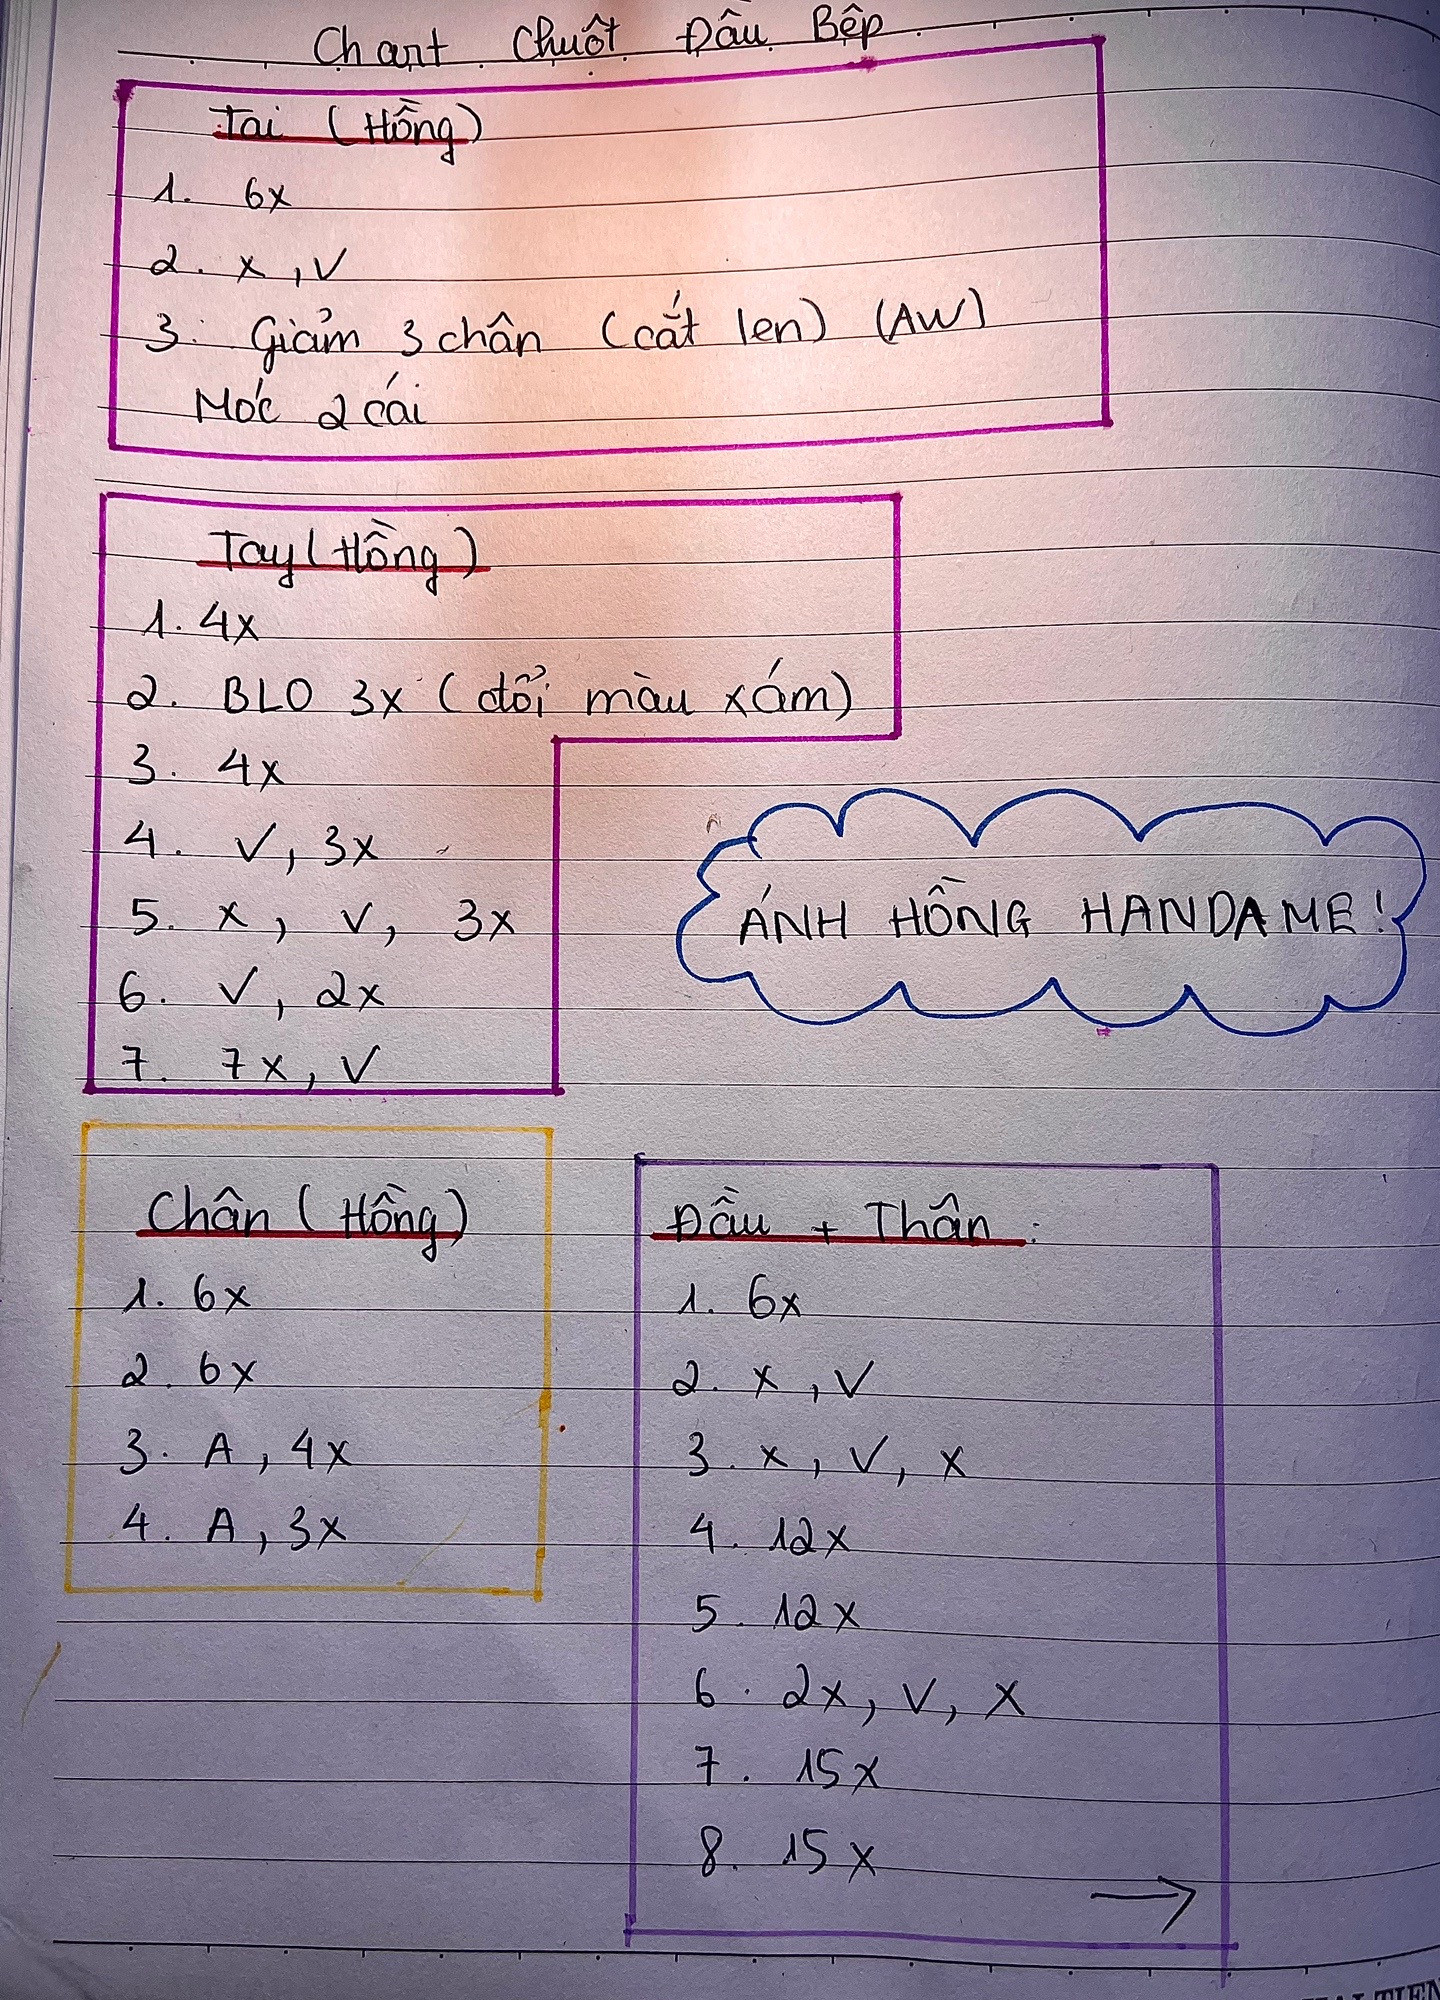 Chart Chuột Đầu Bếp
Tai (Hồng)
1. 6x
2. x, V
3. Giảm 3 chân (cắt len) (AW)
Móc 2 cái
Tay (Hồng)
1. 4x
2. BLO 3x (đổi màu xám)
3. 4x
4. V, 3x
5. x, V, 3x
6. V, 2x
7. 7x, V
ÁNH HỒNG HANDAME!
Chân (Hồng)
1. 6x
2. 6x
3. A, 4x
4. A, 3x
Đầu + Thân:
1. 6x
2. x, V
3. x, V, x
4. 12x
5. 12x
6. 2x, V, x
7. 15x
8. 15x
→